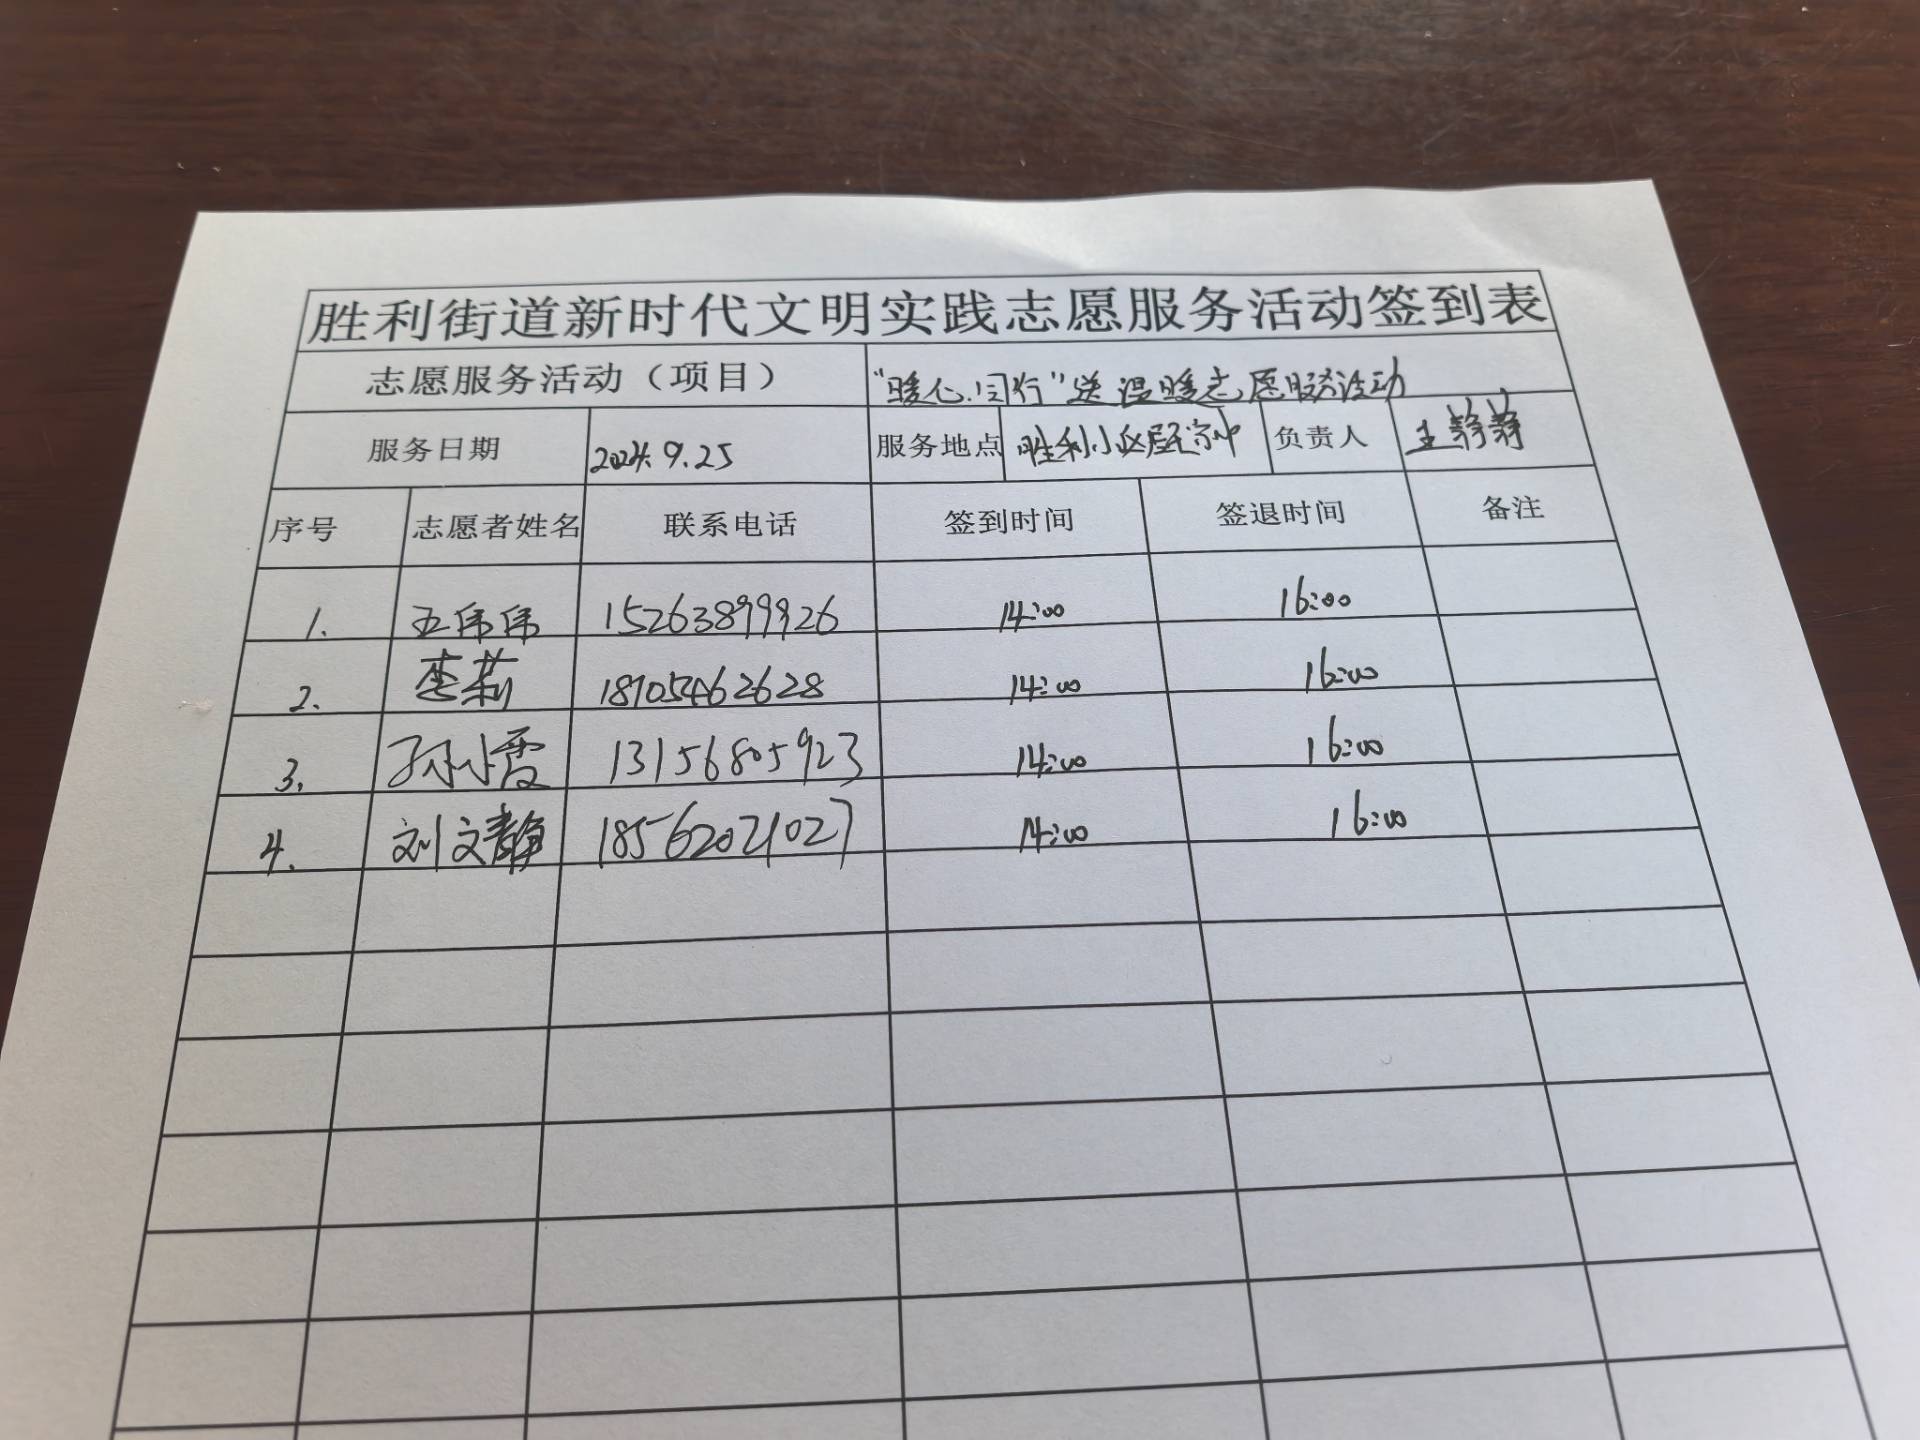 胜利街道新时代文明实践志愿服务活动签到表
志愿服务活动（项目） “暖心同行”送温暖志愿服务活动
服务日期 2024.9.25 服务地点 胜利小区居民家中 负责人 王静静
序号 志愿者姓名 联系电话 签到时间 签退时间 备注
1. 王伟伟 15263899926 14:00 16:00
2. 李莉 18705462628 14:00 16:00
3. 孙小霞 13156805923 14:00 16:00
4. 刘文静 18562021027 14:00 16:00